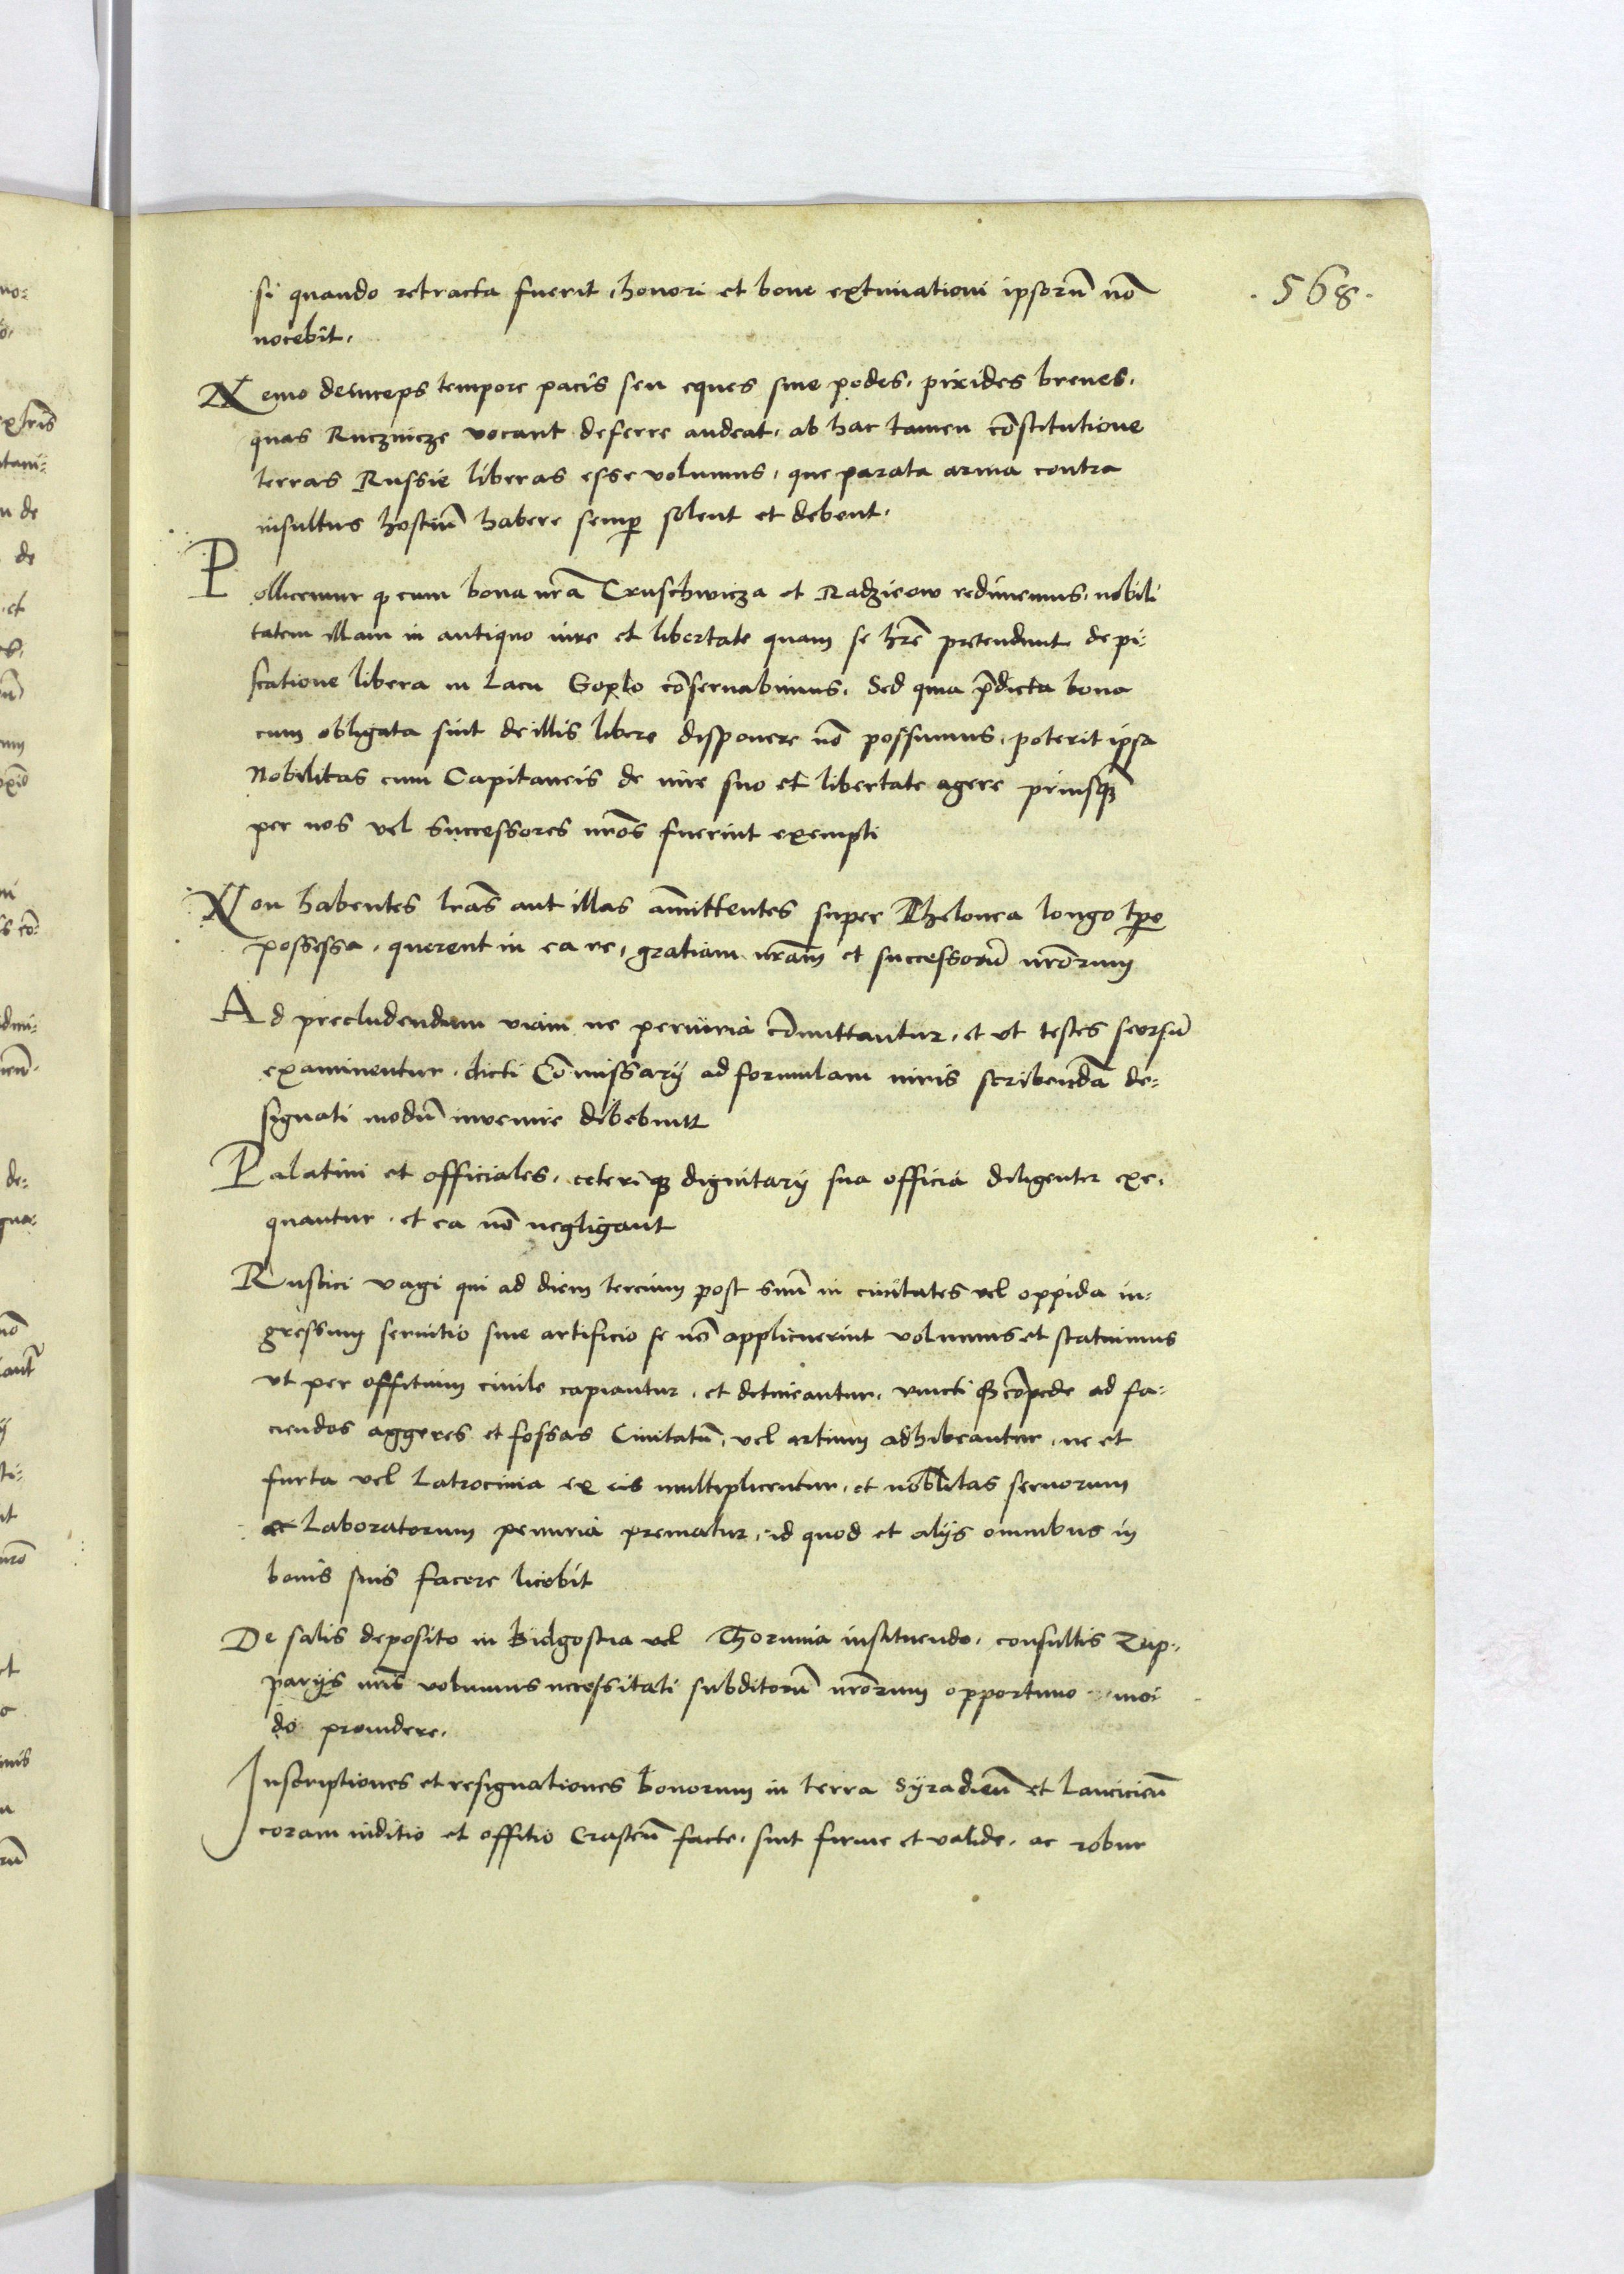 . 568 .
si quando retracta fuerit, honori et bone extimationi ipsorū nō
nocebit.
Nemo deinceps tempore pacis seu eques siue pedes, pixides breues,
quas Rucznicze vocant deferre audeat, ab hac tamen cōstitutione
terras Russie liberas esse volumus, que parata arma contra
insultus hostiū habere semp solent et debent.
Pollicemur q cum bona nrā Cruschwicza et Radzieow redimemus, nobili
tatem illam in antiquo iure et libertate quam se hrē pretendunt de pi-
scatione libera in Lacu Goplo cōseruabimus. Sed quia p̄dicta bona
cum obligata sint de illis libere disponere nō possumus, poterit ipsa
Nobilitas cum Capitaneis de iure suo et libertate agere priusq̄
per nos vel successores nrōs fuerint exempti
Non habentes lrās aut illas am̄ittentes super Thelonea longo tpe
possessa, querent in ea re, gratiam nrām et successorū nrōrum
Ad precludendum viam ne periuria cōmittantur, et vt testes seorsū
examinentur, dicti Cōmissarij ad formulam iuris scribendā de-
signati modū inuenire debebunt
Palatini et officiales, ceteriq dignitarij sua officia diligenter exe-
quantur, et ea nō negligant
Rustici vagi qui ad diem tercium post suū in ciuitates vel oppida in-
gressum seruitio siue artificio se nō applicuerint volumus et statuimus
vt per offitium ciuile capiantur, et detineantur, vincti cōpede ad fa-
ciendos aggeres et fossas Ciuitatū, vel artium adhibeantur, ne et
furta vel Latrocinia ex eis multiplicentur, et nobilitas seruorum
ac Laboratorum penuria prematur, id quod et alijs omnibus in
bonis suis facere licebit
De salis deposito in Bidgostia vel Thorunia instituendo, consultis Zup-
parijs nrīs volumus necessitati subditorū nrōrum opportuno mo
do prouidere.
Inscriptiones et resignationes bonorum in terra Syradieñ et Lancicieñ
coram iuditio et offitio Castreñ facte, sint firme et valide, ac robur